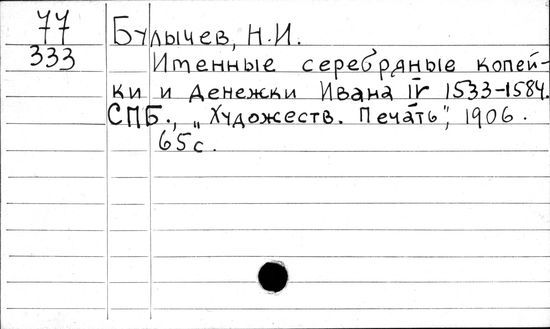 77 Булычев, Н.И.
333 Именные серебряные копей-
ки и денежки Ивана IV 1533-1584.
СПБ., „Художеств. Печать", 1906.
65с.